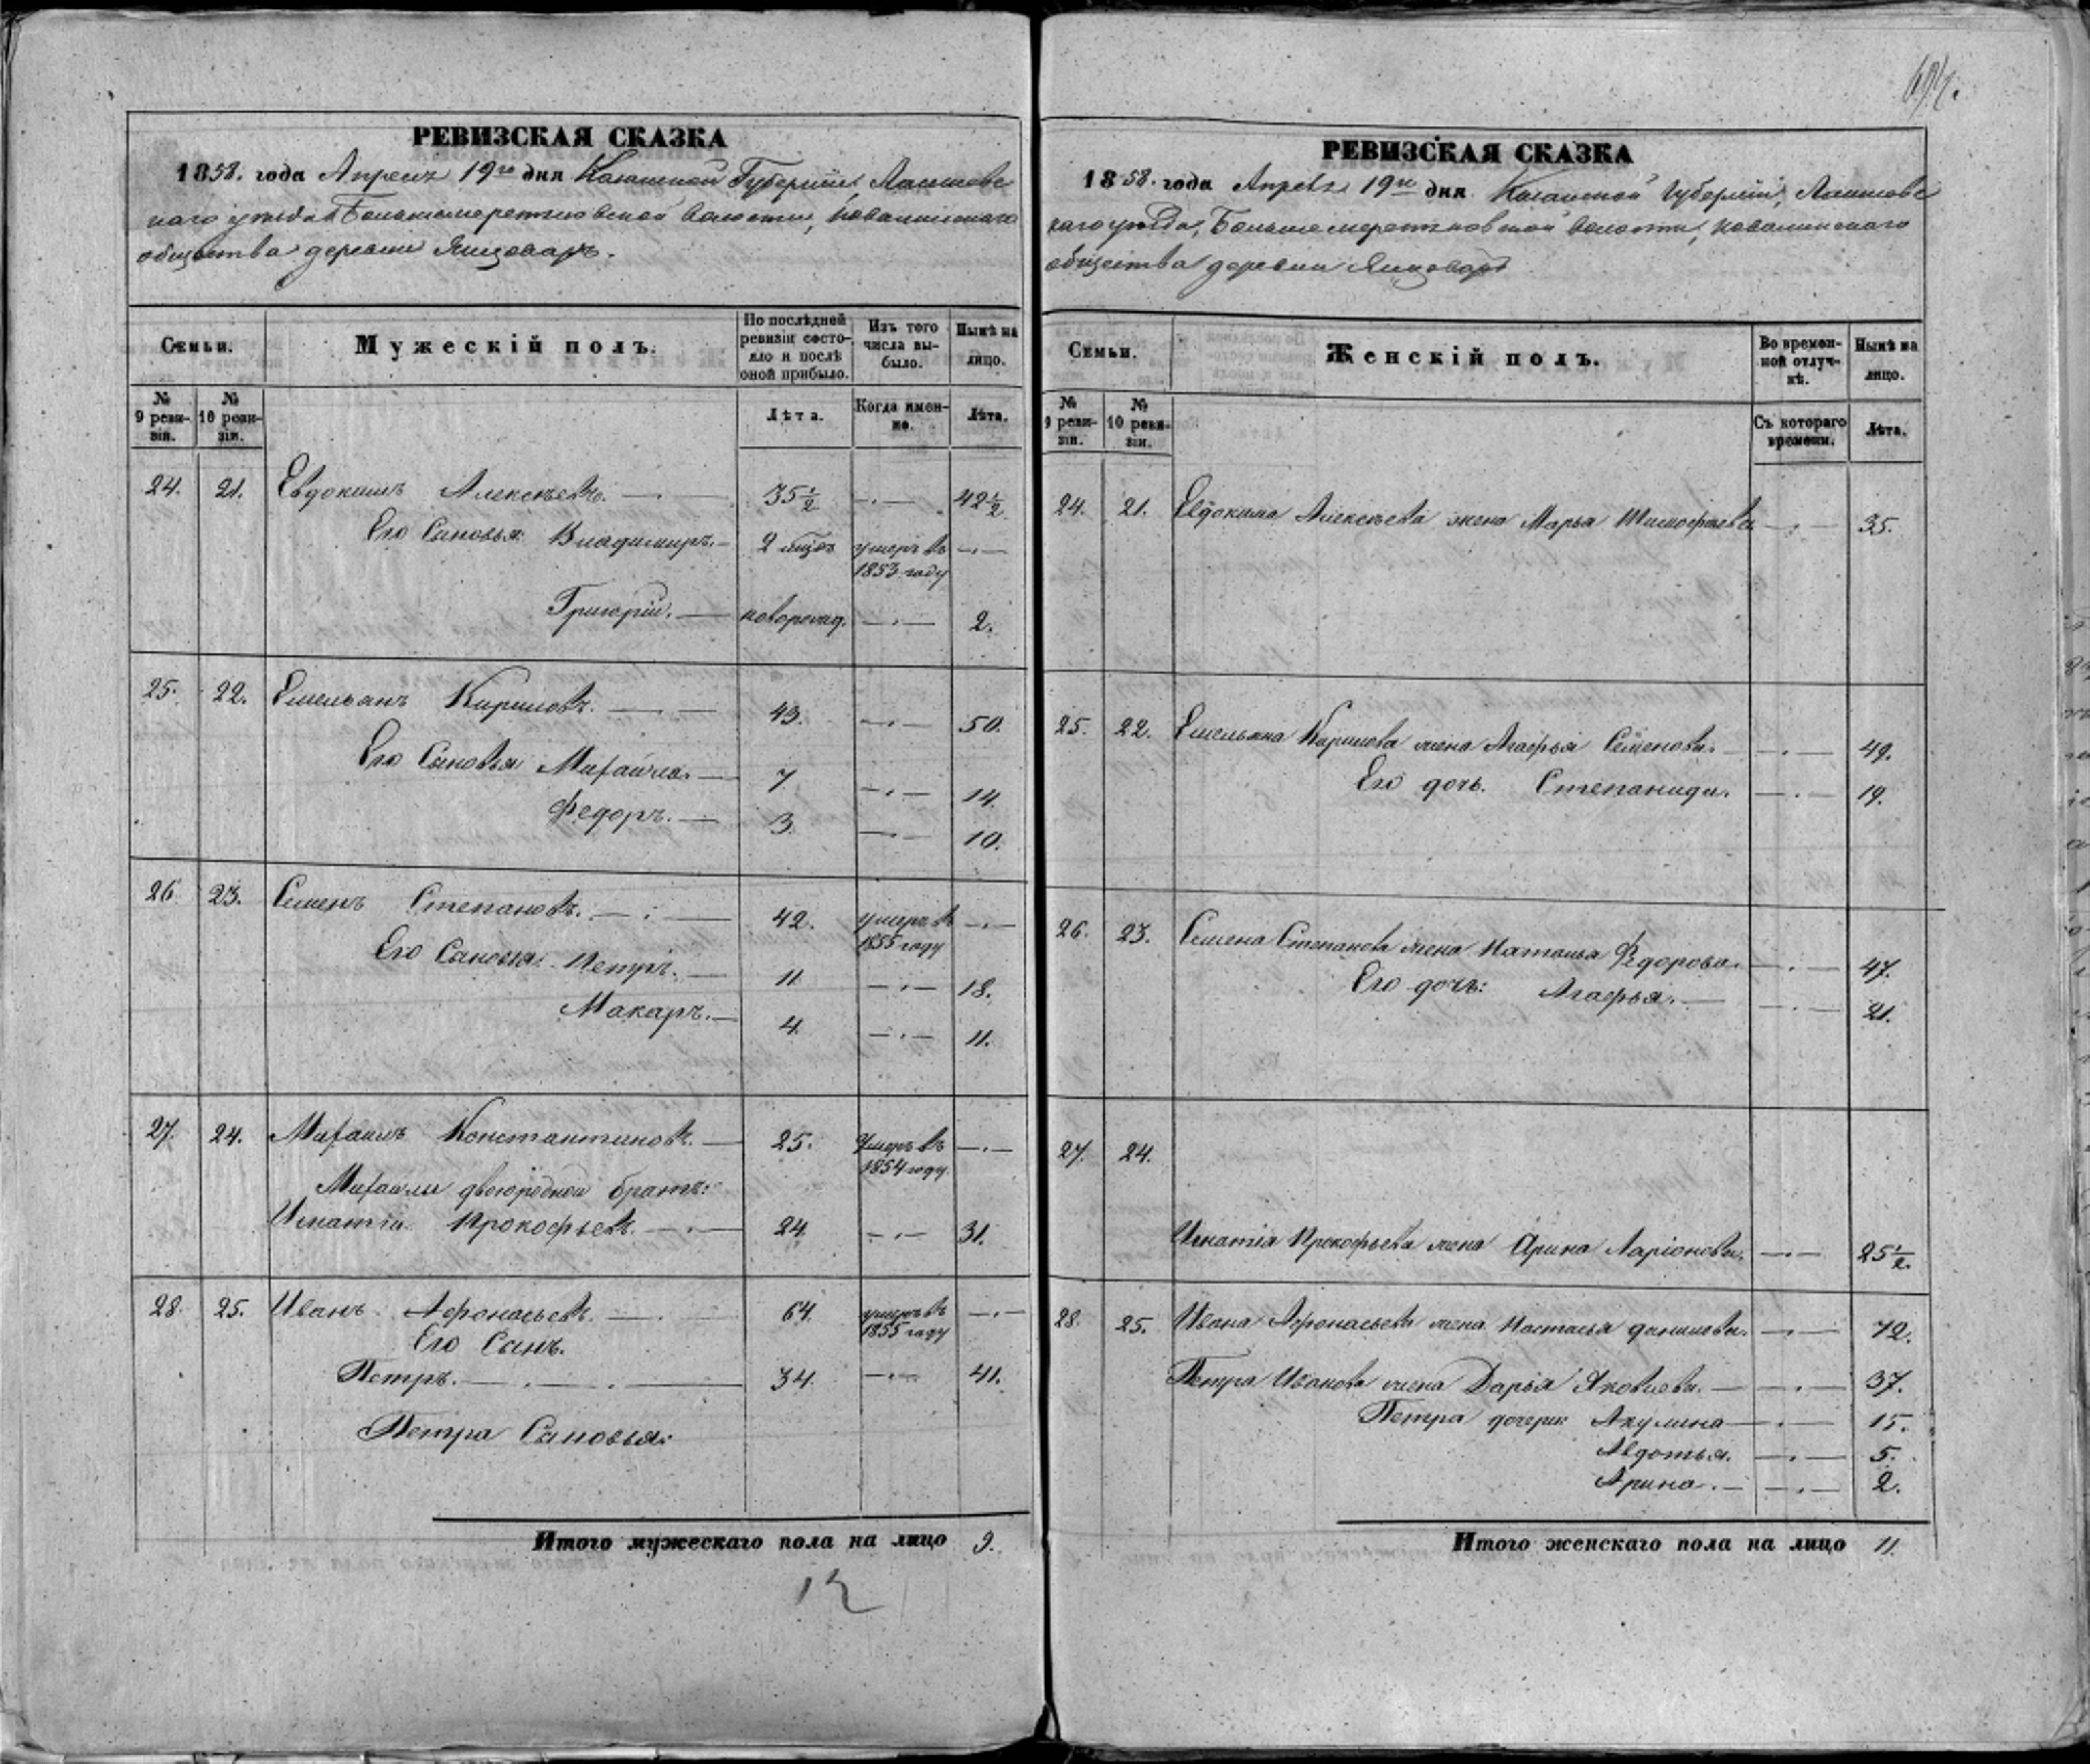 РЕВИЗСКАЯ СКАЗКА
1858. года Апреля 19го дня Казанской Губернии, Лаишевс
каго уезда Большемереттковской волости,
общества деревни Янцовары.
Семьи.
Мужескій полъ.
По послѣдней ревизіи состояло и послѣ оной прибыло.
Изъ того числа выбыло.
Нынѣ на лицо.
№ 9 ревизіи.
№ 10 ревизіи.
Лѣта.
Когда именно.
Лѣта.
24. 21. Евдокимъ Алексѣевъ. 35½ 42½
Его Сыновья: Владимиръ. умеръ въ
1853 году
Григорій. новорожд. 2.
25. 22. Емельянъ Кириловъ. 43. 50.
Его Сыновья Михайла. 7 14.
Федоръ. 3. 10.
26 23. Семенъ Степановъ. 42. умеръ въ
1855 году
Его Сыновья: Петръ. 11 18.
Макаръ. 4. 11.
27. 24. Михаилъ Константиновъ. 25. Умеръ въ
1854 году.
Михайлы двоюродной братъ:
Игнатій Прокофьевъ. 24. 31.
28. 25. Иванъ Афонасьевъ. 64. умеръ въ
1855 году
Его Сынъ.
Петръ. 34. 41.
Петра Сыновья:
Итого мужескаго пола на лицо 9.
12
РЕВИЗСКАЯ СКАЗКА
1858. года Апреля 19го дня Казанской Губерніи, Лаишевс
каго уѣзда, Большемереттковской волости,
общества деревни Янцовары
Семьи.
Женскій полъ.
Во временной отлучкѣ.
Нынѣ на лицо.
№ 9 ревизіи.
№ 10 ревизіи.
Съ котораго времени.
Лѣта.
24. 21. Евдокима Алексѣева жена Марья Тимофѣева 35.
25. 22. Емельяна Кирилова жена Агафья Семенова. 49.
Его дочь. Степанида. 19.
26. 23. Семена Степанова жена Наталья Федорова. 47.
Его дочь: Агафья. 21.
27. 24.
Игнатія Прокофьева жена Арина Ларіонова. 25½.
28. 25. Ивана Афонасьева жена Настасья Данилова. 72.
Петра Иванова жена Дарья Яковлева. 37.
Петра дочери Акулина 15.
Авдотья. 5.
Арина. 2.
Итого женскаго пола на лицо 11.